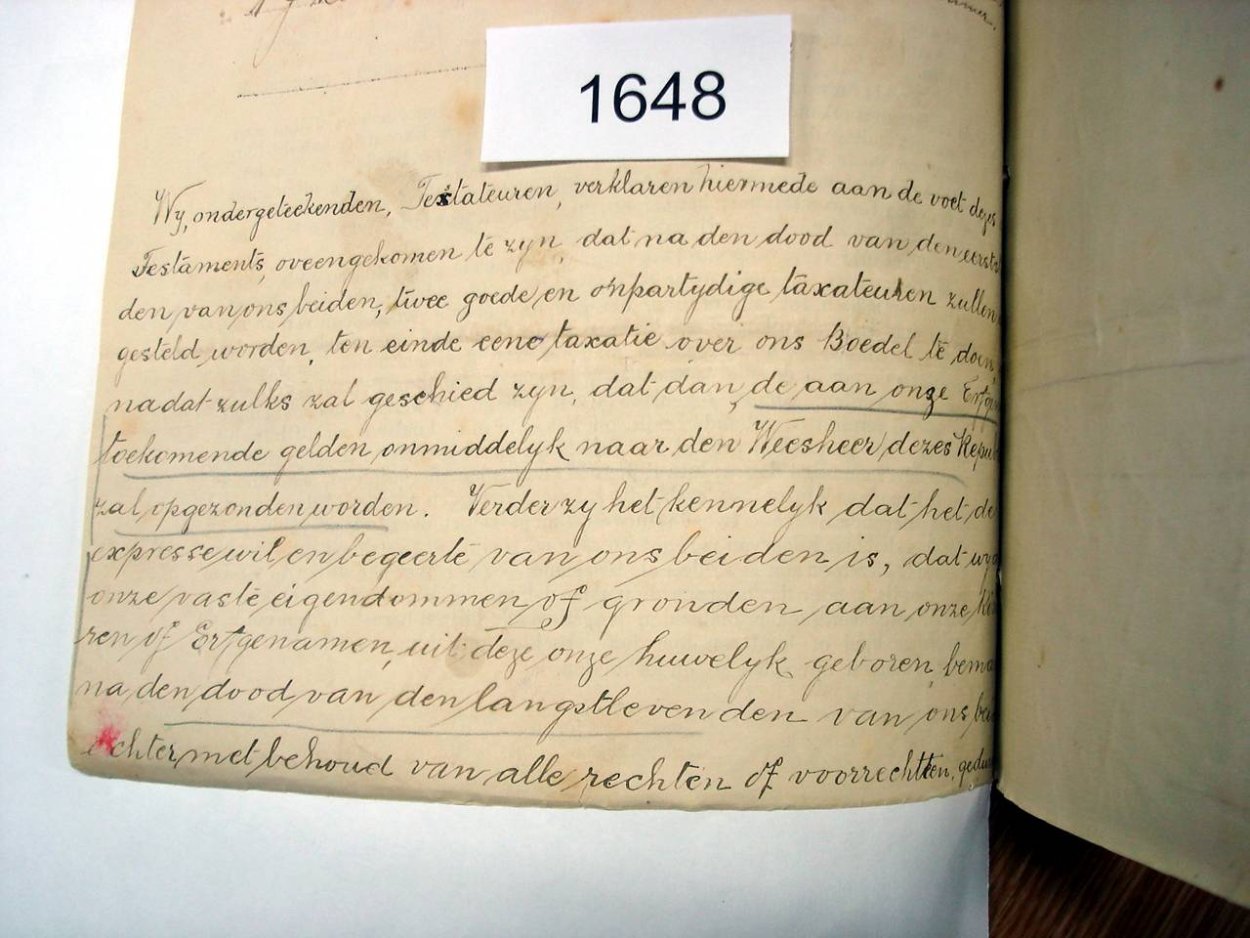 1648
Wy, ondergeteekenden, Testateuren, verklaren hiermede aan de voet dezes
Testaments, oveengekomen te zyn, dat na den dood van den eerst
den van ons beiden, twee goede en onpartydige taxateuren zullen
gesteld worden, ten einde eene taxatie over ons Boedel te doen,
nadat zulks zal geschied zyn, dat dan, de aan onze
toekomende gelden onmiddelyk naar den Weesheer dezes
zal opgezonden worden. Verder zy het kennelyk dat het de
expresse wil en begeerte van ons beiden is, dat wy
onze vaste eigendommen of gronden aan onze
ren of Erfgenamen, uit deze onze huwelyk geboren, bema
na den dood van den langstlevenden van ons bei
echter met behoud van alle rechten of voorrechten, gedu